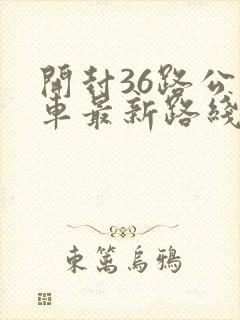 開封36路公
車最新路綫
東籬烏鴉